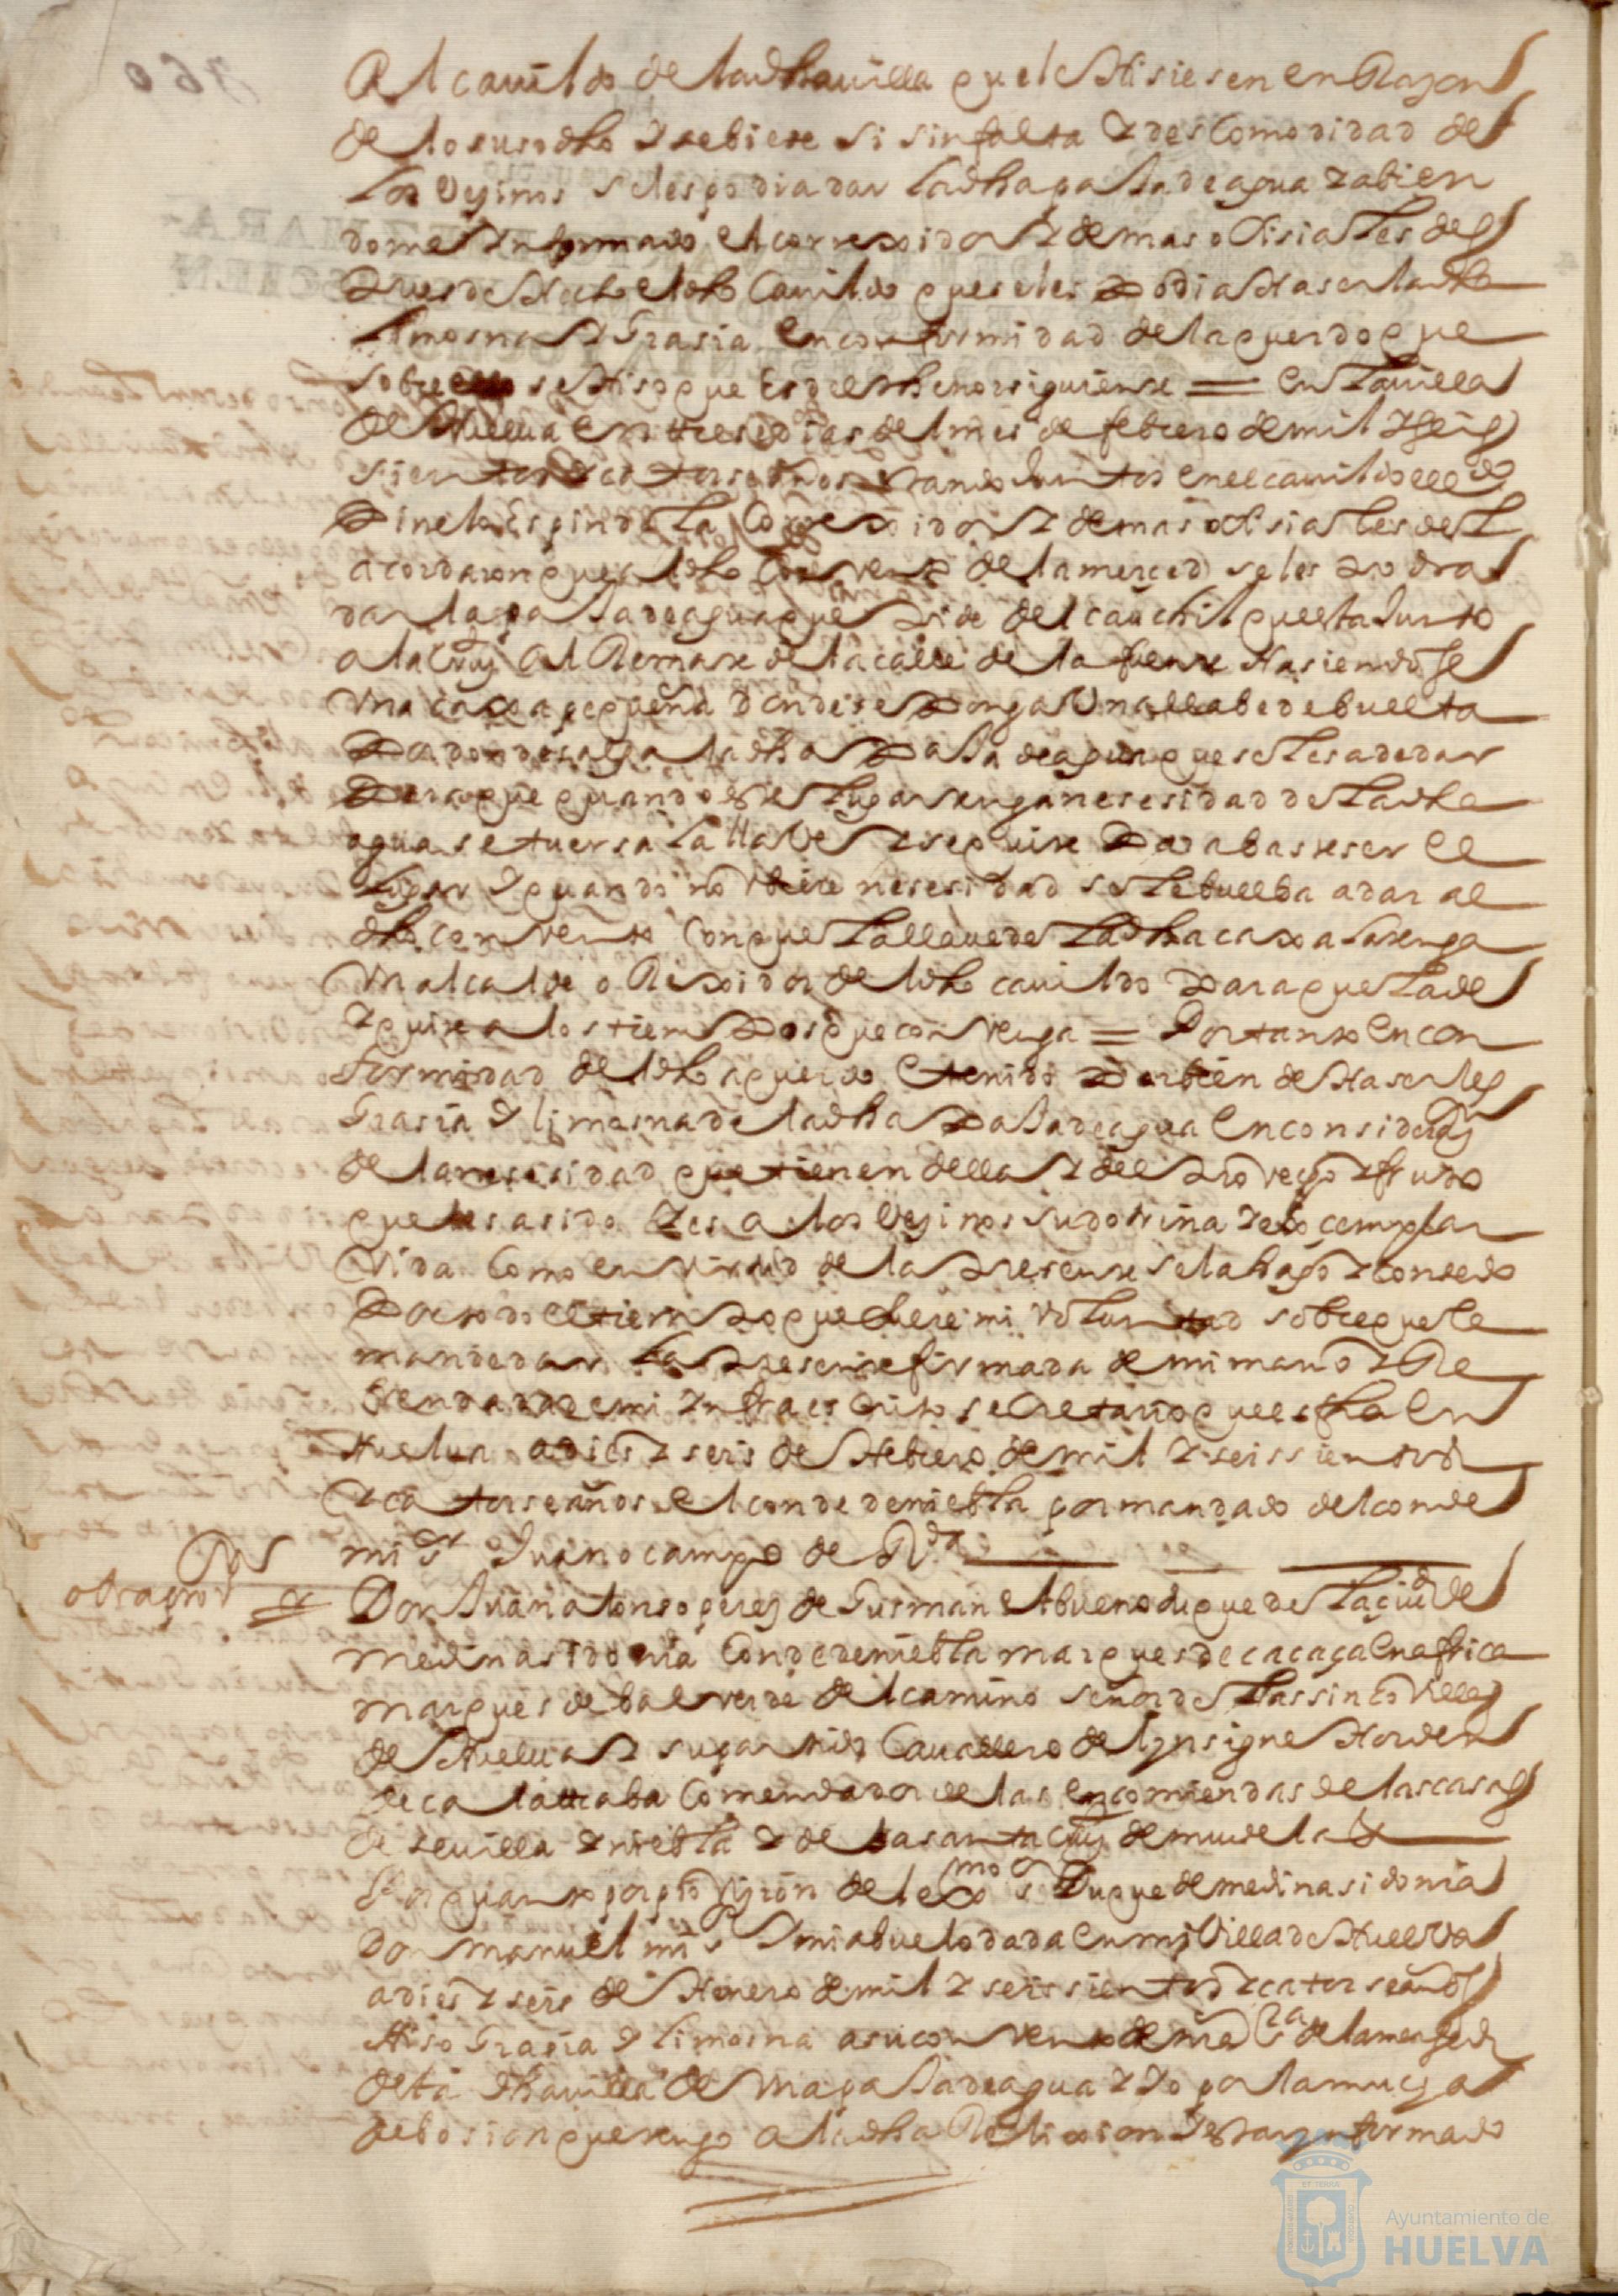 Al cauildo de la dha uilla que le Hisiesen en Razon
de lo susodho y rebiere si sin falta y descomodidad de
los Vezinos se les podia dar la dha paxa de agua y abien
dome Ynformado el correxidor y demas ofisiales del
Pues de Hecho el dho Cauildo que se les podia Haser la dha
limosna y Grasia en conformidad del aquerdo que
sobre ello se Hiso que es del thenor siguiente = en la uilla
de Huelua en trese dias del mes de febrero de mil y seis
sientos y catorse años estando Juntos en el cauildo el ldo
Pinelo Espindola Correxidor y demas ofisiales del
acordaron que al dho Convento de la merced se les podra
dar la paxa de agua que pide del cauchil que esta Junto
a la Cruz al Remate de la calle de la fuente Hasiendose
Una caxa pequeña donde se ponga Una llabe de buelta
Por donde salga la dha Paxa de agua que se les a de dar
Para que quando este lugar tenga nesesidad de la dha
agua se tuersa la llabe y se quite Para abasteser el
lugar y quando no Ubiere nesesidad se le buelba a dar al
dho convento Con que la llaue de la dha caxa la tenga
Un alcalde o Rexidor del dho cauildo para que la de
y quite a los tiempos que convenga = Por tanto en con
formidad del dho aquerdo e tenido por bien de Haserles
Grasia y limosna de la dha Paxa de agua en considerason
de la nesesidad que tienen della y del provecho y fruto
que les a sido y es a los Vezinos su dotrina y exsemplar
Vida Como en Virtud de la presente se la hago y consedo
Por todo el tiempo que fuere mi Voluntad sobre que le
mande dar la presente firmada de mi mano y Re
frendada de mi Ynfraescrito secretario que es fha en
Huelua a dies y seis de Hebrero de mil y seissientos
y catorse años el conde de niebla por mandado del conde
mi sr Juan ocampo de Rda
otra prov on
Don Juan alonso perez de Gusman el bueno duque de la çiud de
medina sidonia Conde de niebla marques de caçaça en africa
marques de balverde del camino señor de las sinco Villas
de Huelua y su partido Cauallero del ynsigne Horden
de calatraba Comendador de las encomiendas de las casas
de seuilla y niebla y de la santa cruz de mudela &
Por quanto por probision del exmo sr Duque de medina sidonia
Don manuel mi sr y mi abuelo dada en mi Villa de Huelva
a dies y seis de Henero de mil y seissientos y catorse años
Hiso Grasia y limosna a su convento de nra sra de la merzed
de la dha uilla de Una paxa de agua y yo por la mucha
debosion que tengo a la dha Relixion y estar ynformado
Ayuntamiento de
HUELVA